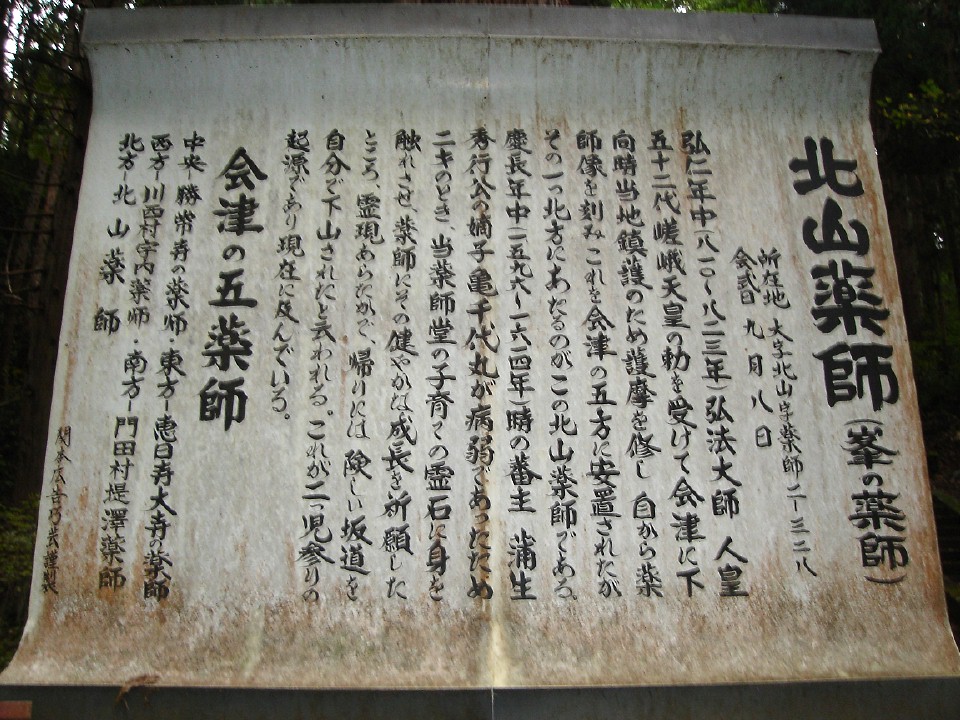 北山薬師(峯の薬師)
所在地 大字北山字薬師二ー三二八
会式日 九月八日
弘仁年中(八一〇〜八二三年)弘法大師 人皇
五十二代嵯峨天皇の勅を受けて会津に下
向時当地鎮護のため護摩を修し 自から薬
師像を刻み これを会津の五方に安置されたが
その一っ北方にあたるのがこの北山薬師である。
慶長年中(一五九六〜一六一四年)時の蕃主 蒲生
秀行公の嫡子亀千代丸が病弱であったため
二才のとき、当薬師堂の子育ての霊石に身を
触れさせ、薬師にその健やかな成長を祈願した
ところ、霊現あらたかで、帰りには 険しい坂道を
自分で下山されたと云われる。これが二っ児参りの
起源であり現在に及んでいる。
会津の五薬師
中央ー勝常寺の薬師・東方ー恵日寺大寺薬師
西方ー川西村宇内薬師・南方ー門田村堤澤薬師
北方ー北山薬師